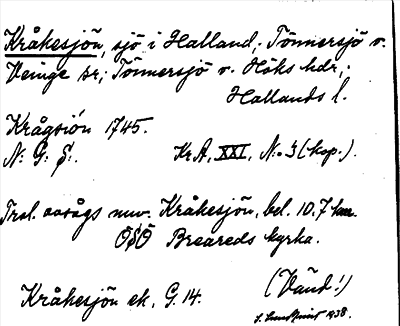 Kråkesjön, sjö i Halland, Tönnersjö o.
Veinge sr; Tönnersjö o. Höks hdr,
Hallands l.
Krågsiön 1745.
N: G: S:. KrA, XXI, N:o 3 (kop.).
Trol. avsågs nuv. Kråkesjön, bel. 10.7 km.
OSO Breareds kyrka.
Kråkesjön ek. G. 14. (Vänd!)
1938.